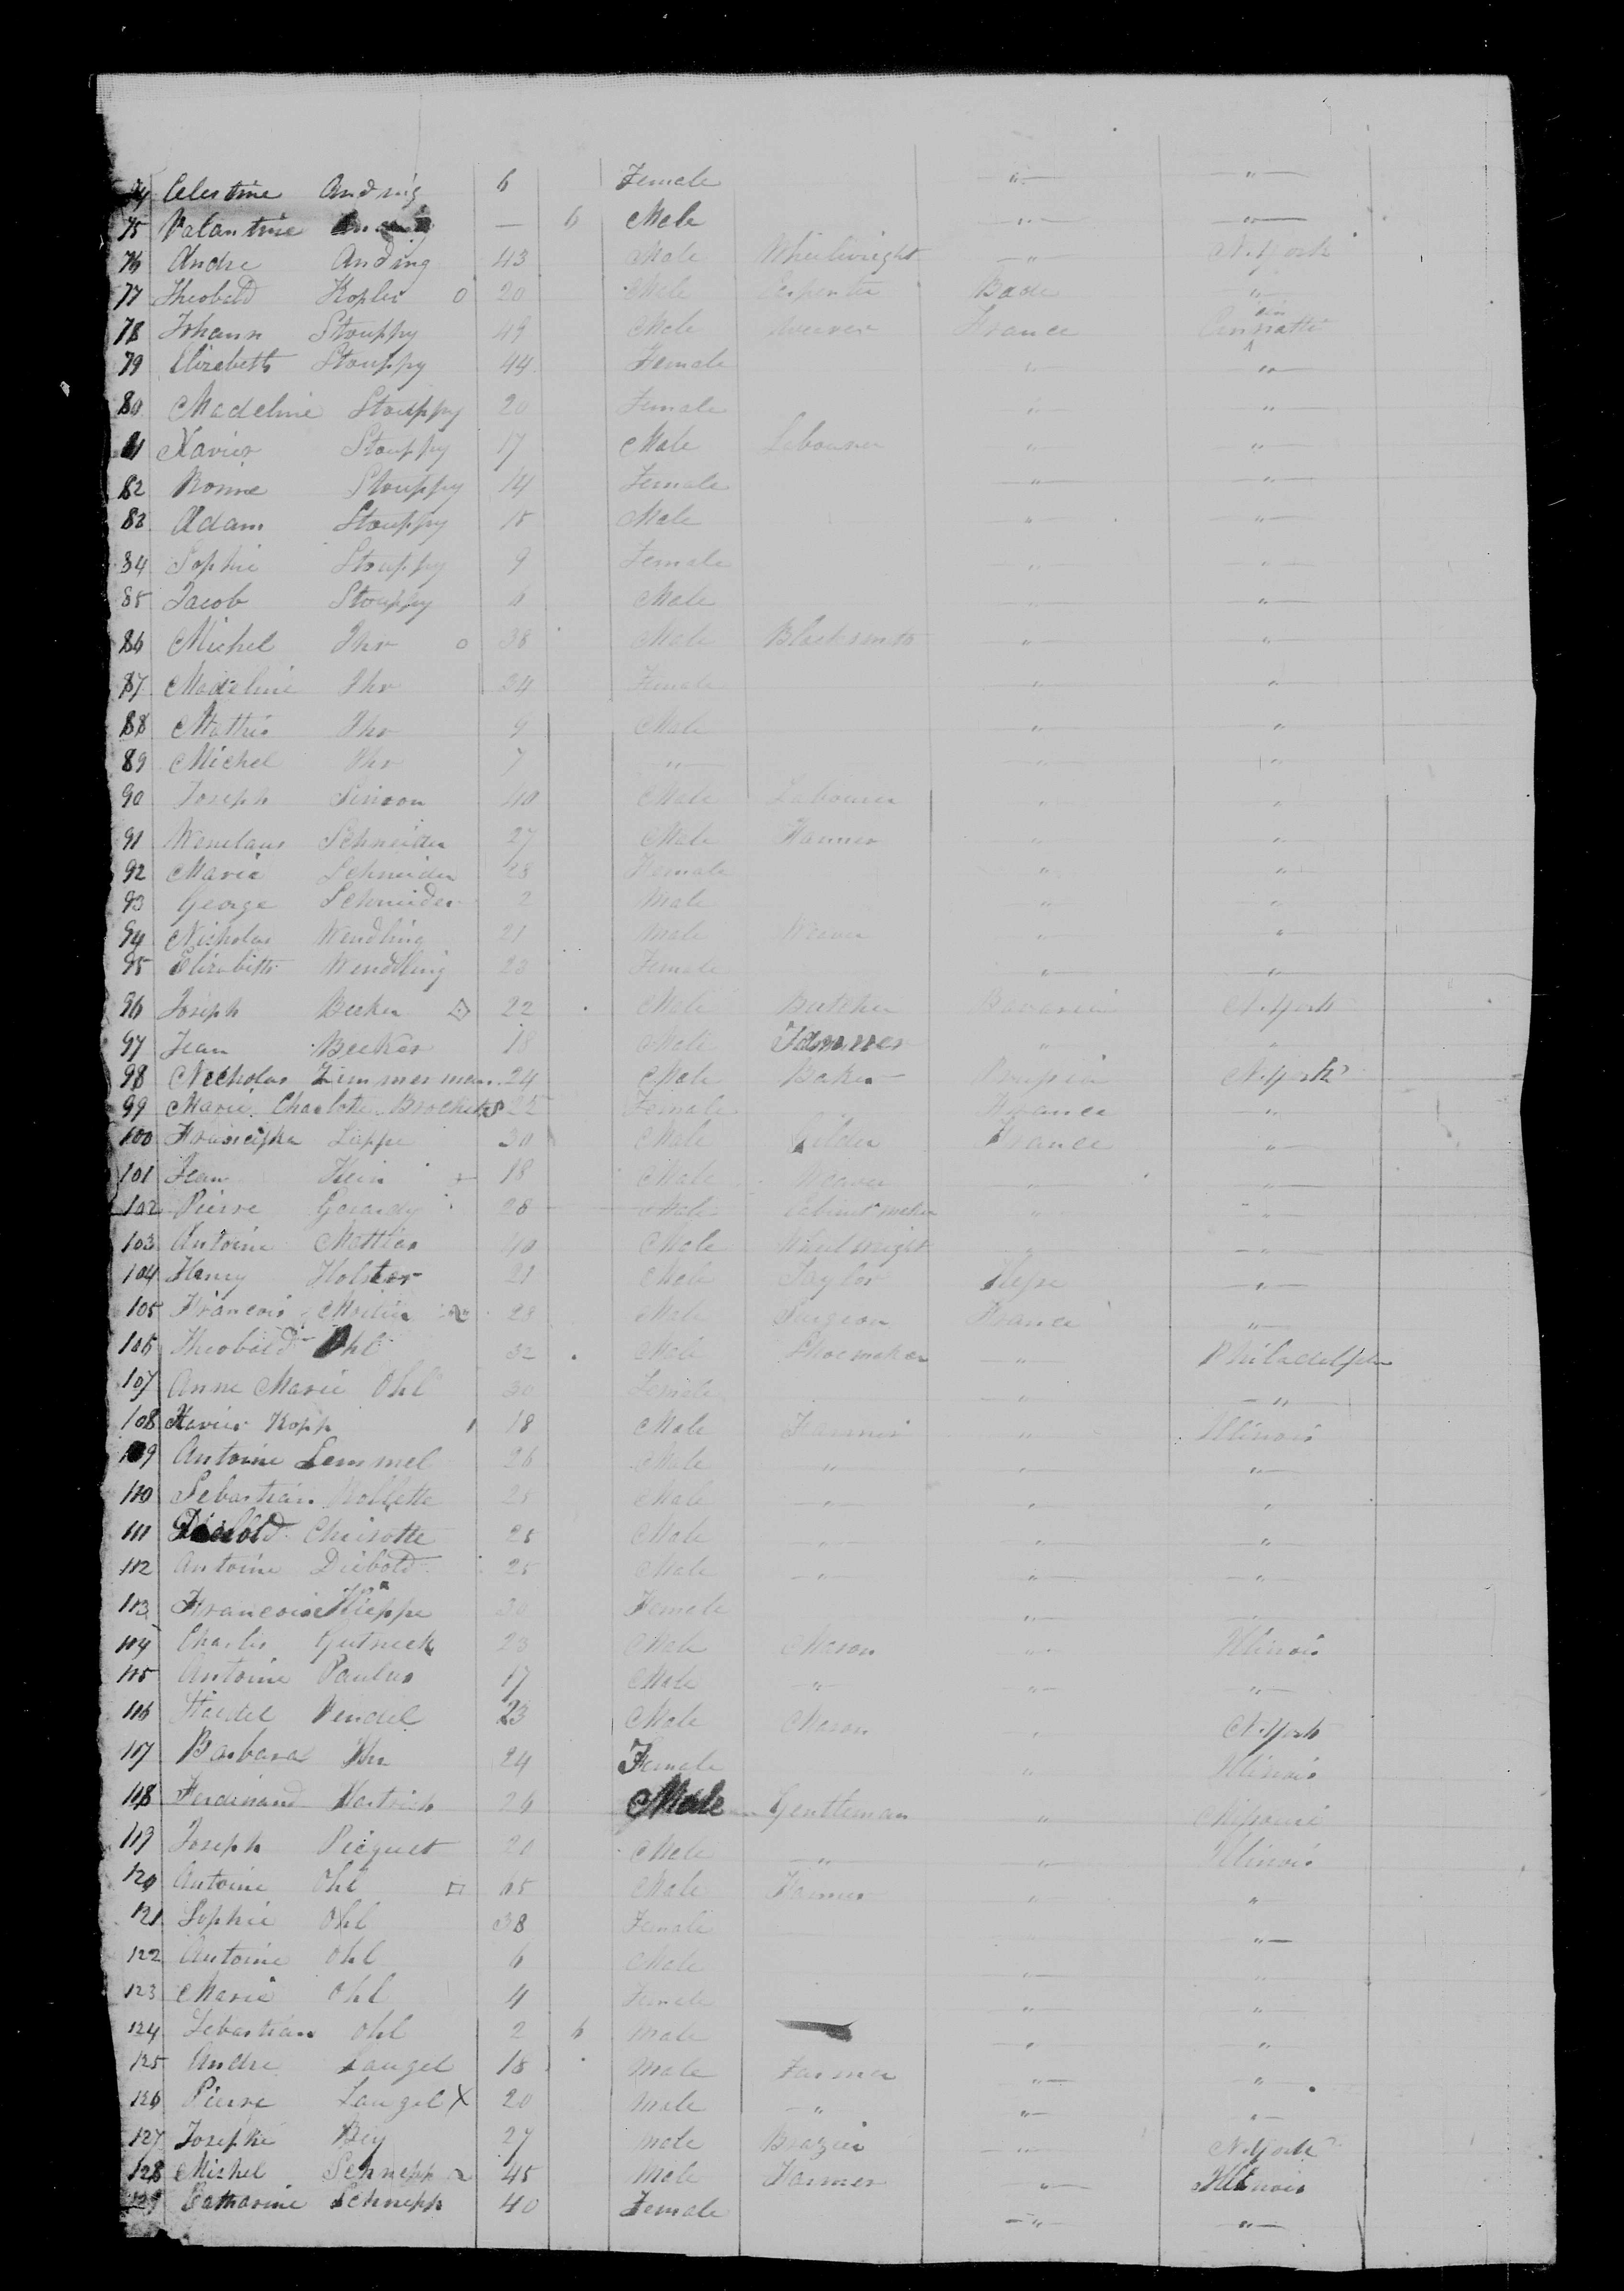 74 Celestine Anding 6 Female " "
75 Valantine Anding — 6 Male " "
76 Andre Anding 43 Male Wheelwright " N. York
77 Theobald Kopler o 20 Male Carpenter Bade "
78 Johann Stouppy 49 Male Weaver France Cinnatti
79 Elizabeth Stouppy 44 Female " "
80 Madeline Stouppy 20 Female " "
81 Xavier Stouppy 17 Male Labourer " "
82 Stouppy 14 Female " "
83 Adam Stouppy 15 Male " "
84 Sophie Stouppy 9 Female " "
85 Jacob Stouppy 6 Male " "
86 Michel Ihr o 38 Male Blacksmith " "
87 Madeline Ihr 34 Female " "
88 Mathis Ihr 9 Male " "
89 Michel Ihr 7 " " "
90 Joseph Simon 40 Male Labourer " "
91 Wenelaus Schneider 27 Male Farmer " "
92 Marie Schneider 28 Female " "
93 George Schneider 2 Male " "
94 Nicholas Wendling 21 Male Weaver " "
95 Elizabeth Wendling 23 Female " "
96 Joseph Becker 22 Male Butcher Bavaria N. York
97 Jean Becker 18 Male Farmer " "
98 Necholas Zimmerman 24 Male Baker Prussia N. York
99 Marie Charlotte 25 Female France "
100 Lappe 30 Male Gilder France "
101 Jean Klein 18 Male Weaver " "
102 Pierre Gerardy 28 Male Cabinet maker " "
103 Antoine Mattias 40 Male Wheelwright " "
104 Henry Holster 21 Male Taylor Hesse "
105 Francois 28 Male Surgeon France "
106 Theobald Ohl 32 Male Shoemaker " Philadelphia
107 Anne Marie Ohl 30 Female " "
108 Xavier Kopp 18 Male Farmer " Illinois
109 Antoine Lemmel 26 Male " " "
110 Sebastian Kollette 25 Male " " "
111 Diebold Chrisotte 25 Male " " "
112 Antoine Diebold 25 Male " " "
113 Francoise 30 Female " "
114 Charles Gutneck 23 Male Mason " Illinois
115 Antoine Paulus 17 Male " " "
116 Staedel Wendel 23 Male Mason " N. York
117 Barbara Ihr 24 Female " Illinois
118 Ferdinand Hartrich 26 Male Gentleman " Missouri
119 Joseph Picquet 20 Male " " Illinois
120 Antoine Ohl 45 Male Farmer " "
121 Sophie Ohl 38 Female "
122 Antoine Ohl 6 Male " "
123 Marie Ohl 4 Female " "
124 Sebastian Ohl 2 6 Male " "
125 Andre Laugel 18 Male Farmer " "
126 Pierre Laugel X 20 Male " " "
127 Josephe Bey 27 Male Brazier " N. York
128 Michel Schnepp 45 Male Farmer " Illinois
129 Catharine Schnepp 40 Female " "